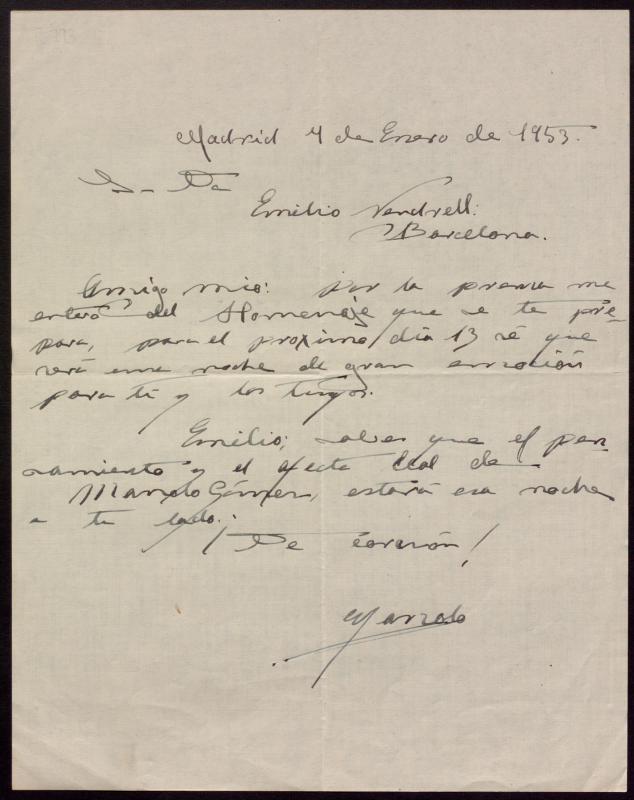 Madrid 7 de Enero de 1953.
Emilio Vendrell:
Barcelona.
Amigo mio: por la prensa me
entero del Homenaje que se te pre-
para, para el proximo día 13 sé que
será una noche de gran emoción
para ti y los tuyos.
Emilio; sabes que el pen-
samiento y el afecto leal de
Manolo Gómez, estará esa noche
a tu lado:
¡De corazón!
Manolo